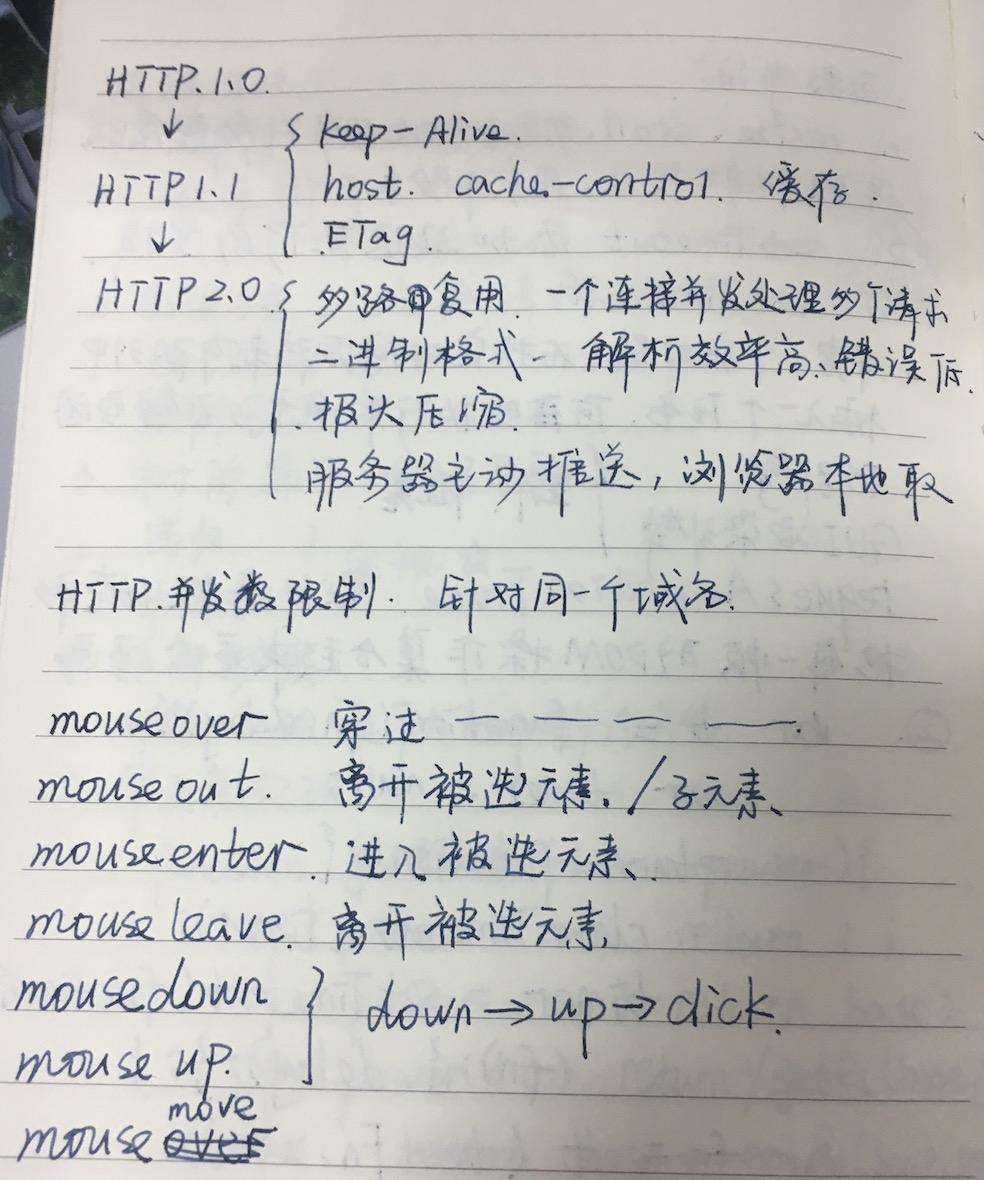 HTTP.1.0.
↓
Keep-Alive.
HTTP1.1 { host. cache-control. 缓存.
↓
ETag.
HTTP2.0 { 多路复用. 一个连接并发处理多个请求
二进制格式- 解析效率高、错误低.
报头压缩.
服务器主动推送,浏览器本地取
HTTP.并发数限制. 针对同一个域名.
mouseover 穿过 — — — —.
mouseout. 离开被选元素. / 子元素、
mouseenter. 进入被选元素、.
mouseleave. 离开被选元素.
mousedown } down → up → click.
mouse up.
move
mouse over